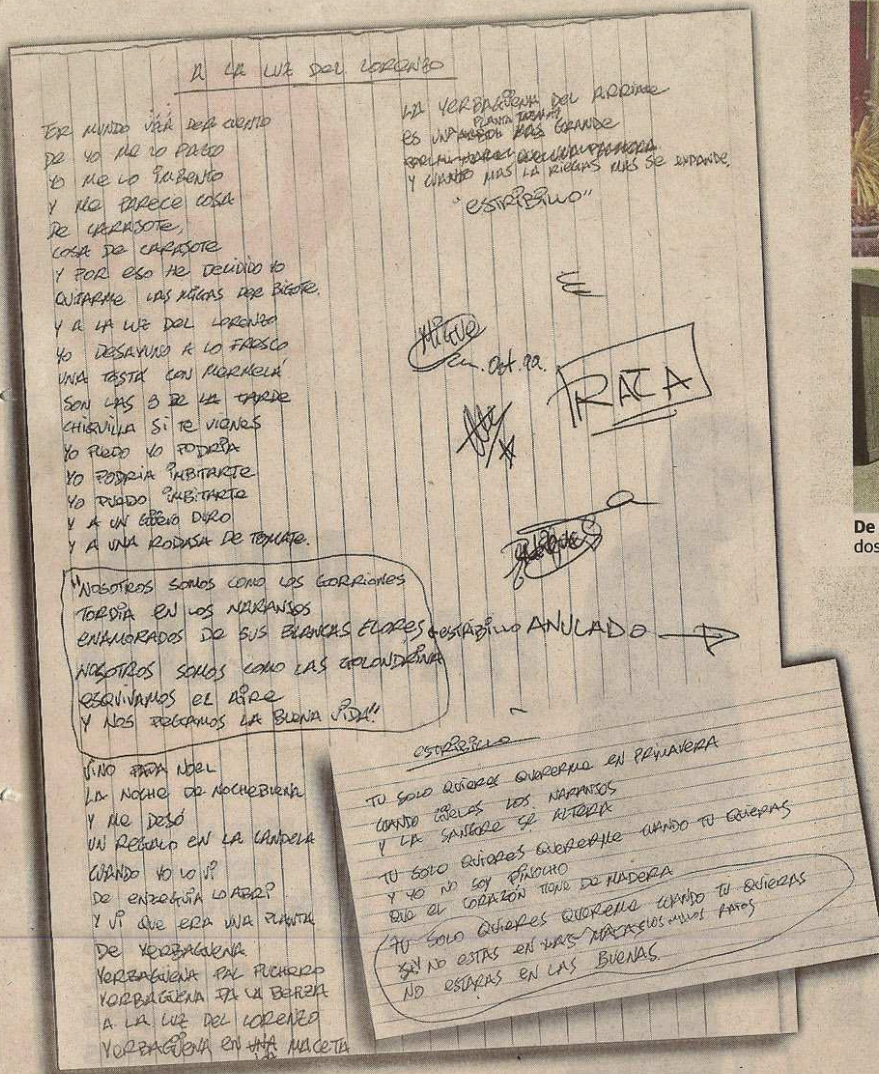 A LA LUZ DEL LORENZO
ER MUNDO DER CUENTO
DE YO ME LO PASEO
YO ME LO IMBENTO
Y ME PARECE COSA
DE CARASOTE,
COSA DE CARASOTE
Y POR ESO HE DECIDIDO YO
QUITARME LAS MIGAS DER BIGOTE.
Y A LA LUZ DEL LORENZO
YO DESAYUNO A LO FRESCO
UNA TOSTÁ CON MERMELÁ
SON LAS 3 DE LA TARDE
CHIQUILLA SI TE VIENES
YO PUEDO YO PODRÍA
YO PODRIA IMBITARTE
YO PUEDO IMBITARTE
Y A UN GÜEVO DURO
Y A UNA RODASA DE TOMATE.
"NOSOTROS SOMOS COMO LOS GORRIONES
TORDIA EN LOS NARANSOS
ENAMORADOS DE SUS BLANCAS FLORES
NOSOTROS SOMOS COMO LAS GOLONDRINA
ESQUIVAMOS EL AIRE
Y NOS PEGAMOS LA BUENA VIDA"
ESTRIBILLO ANULADO
VINO PAPA NOEL
LA NOCHE DE NOCHEBUENA
Y ME DESÓ
UN REGALO EN LA CANDELA
CUANDO YO LO VI
DE ENZEGUÍA LO ABRI
Y VI QUE ERA UNA PLANTA
DE YERBAGÜENA
YERBAGÜENA PAL PUCHERO
YERBAGÜENA PA LA BERZA
A LA LUZ DEL LORENZO
YERBAGÜENA EN UNA LA MACETA
LA YERBAGÜENA DEL ARRIATE
ES UNA PLANTA MAS GRANDE
Y CUANTO MAS LA RIEGAS MAS SE EXPANDE.
"ESTRIBILLO"
MIGUE
Oct. 99.
RATA
ESTRIBILLO
TU SOLO QUIERES QUERERME EN PRIMAVERA
CUANDO GÜELAS LOS NARANSOS
Y LA SANGRE SE ALTERA
TU SOLO QUIERES QUERERME CUANDO TU QUIERAS
Y YO NO SOY PINOCHO
QUE EL CORAZÓN TIENE DE MADERA
TU SOLO QUIERES QUERERME CUANDO TU QUIERAS
SI NO ESTAS EN LOS MALOS RATOS
NO ESTARAS EN LAS BUENAS.
De
dos